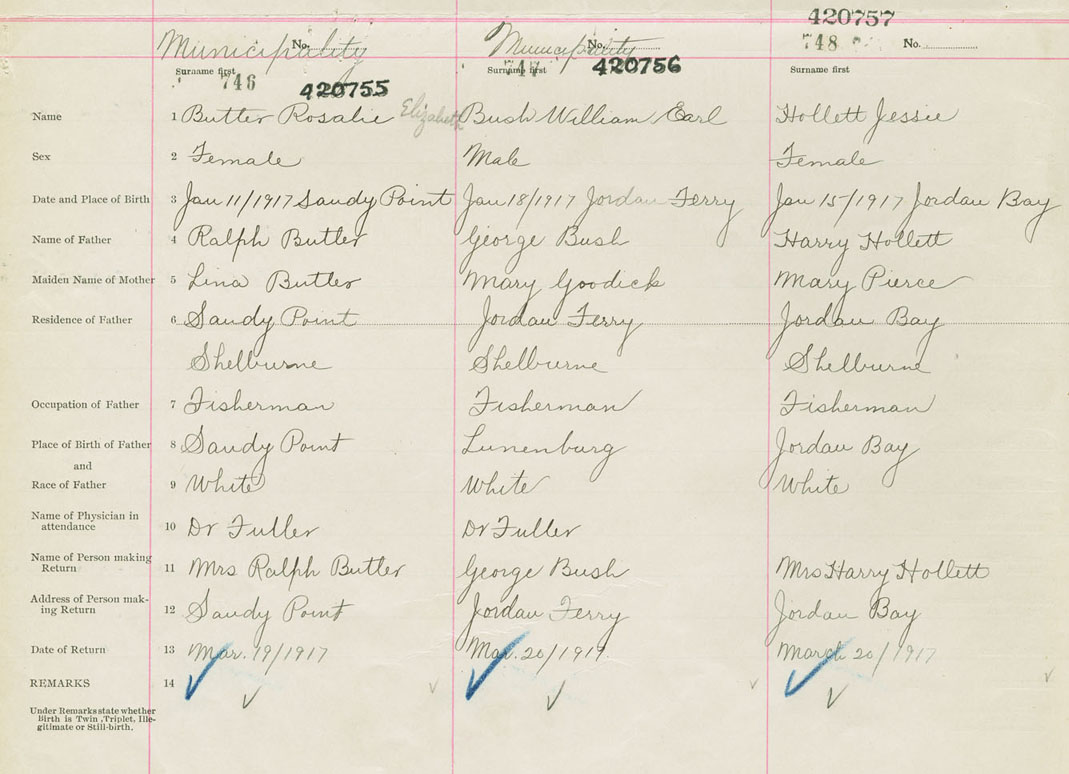 420757
Municipality No. Municipality No. 748 No.
Surname first Surname first Surname first
746 420755 747 420756
Name 1 Butler Rosalie Elizabeth Bush William Earl Hollett Jessie
Sex 2 Female Male Female
Date and Place of Birth 3 Jan 11/1917 Sandy Point Jan 18/1917 Jordan Ferry Jan 15/1917 Jordan Bay
Name of Father 4 Ralph Butler George Bush Harry Hollett
Maiden Name of Mother 5 Lina Butler Mary Goodick Mary Pierce
Residence of Father 6 Sandy Point Jordan Ferry Jordan Bay
Shelburne Shelburne Shelburne
Occupation of Father 7 Fisherman Fisherman Fisherman
Place of Birth of Father 8 Sandy Point Lunenburg Jordan Bay
and
Race of Father 9 White White White
Name of Physician in
attendance 10 Dr Fuller Dr Fuller
Name of Person making
Return 11 Mrs Ralph Butler George Bush Mrs Harry Hollett
Address of Person mak-
ing Return 12 Sandy Point Jordan Ferry Jordan Bay
Date of Return 13 Mar. 19/1917 Mar. 20/1917. March 20/1917
REMARKS 14
Under Remarks state whether
Birth is Twin, Triplet, Ille-
gitimate or Still-birth.